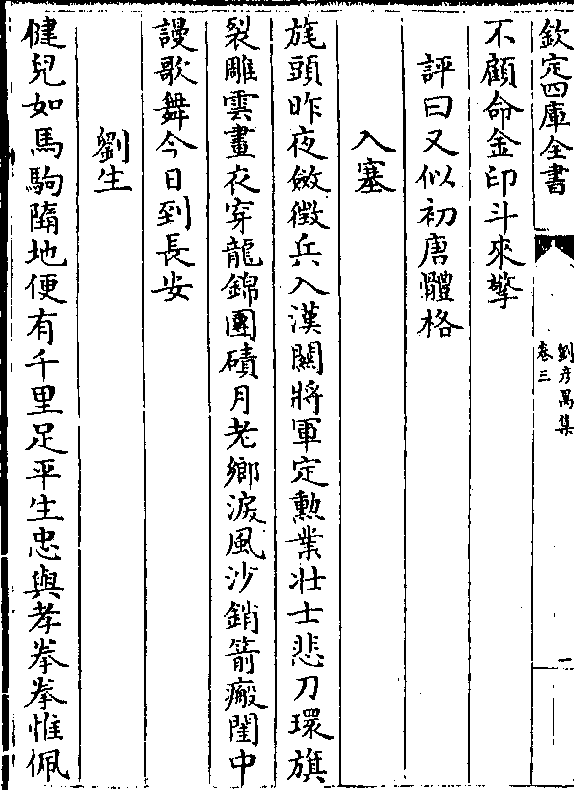 欽定四庫全書
劉彦昺集
卷三
一
不顧命金印斗來擎
評曰又似初唐體格
入塞
旄頭昨夜斂徵兵入漢關將軍定勲業壯士悲刀環旗
裂雕雲畫衣穿龍錦團磧月老鄉淚風沙銷箭瘢閨中
謾歌舞今日到長安
劉生
健兒如馬駒墮地便有千里足平生忠與孝拳拳惟佩